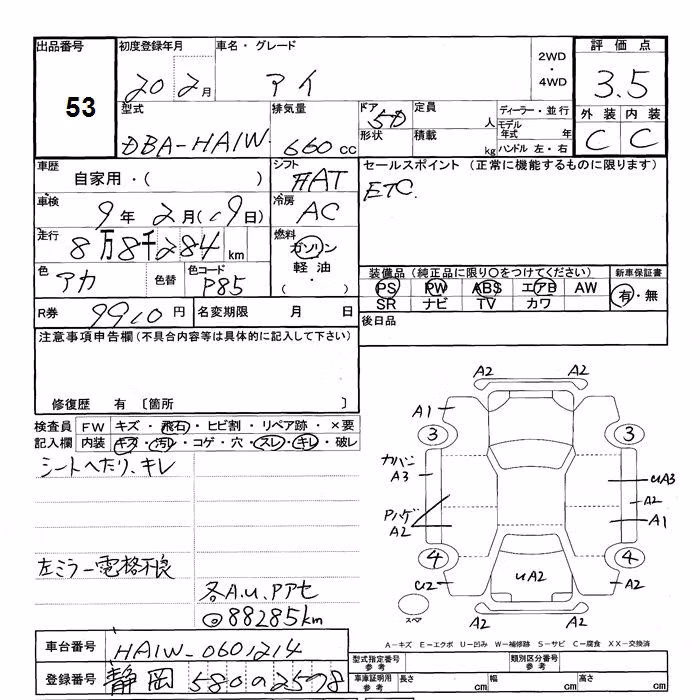 出品番号 初度登録年月 車名・グレード 2WD・4WD 評価点
53 20 2月 アイ 3.5
型式 排気量 ドア 定員 ディーラー・並行 外装 内装
DBA-HA1W 660cc 5D 人 モデル年式 年 C C
形状 積載 kg ハンドル 左・右
車歴 シフト セールスポイント (正常に機能するものに限ります)
自家用・( ) FAT ETC.
車検 冷房
9年2月(19日) AC
走行 燃料
8万8千284km ガソリン
軽油
・( )
色 色替 色コード 装備品(純正品に限り○をつけてください) 新車保証書
アカ P85 PS PW ABS エアB AW 有・無
SR ナビ TV カワ
R券 9910円 名変期限 月 日 後日品
注意事項申告欄(不具合内容等は具体的に記入して下さい)
修復歴 有 〔箇所 〕
検査員 FW キズ・飛石・ヒビ割・リペア跡・×要
記入欄 内装 キズ・汚レ・コゲ・穴・スレ・キレ・破レ
シートヘたり、キレ
左ミラー電格不良
各A.U.Pアセ
◎88285km
A2 A2
A1
3 3
カバン
A3
UA3
A2
Pハゲ
A2
A1
4 4
U2 UA2 A2
スペア
A2 A2
A−キズ E−エクボ U−凹み W−補修跡 S−サビ C−腐食 XX−交換済
車台番号 HA1W-0601214 型式指定番号 参考 類別区分番号 参考
登録番号 静岡 580 の 2578 車庫証明用 参考 長さ cm 幅 cm 高さ cm